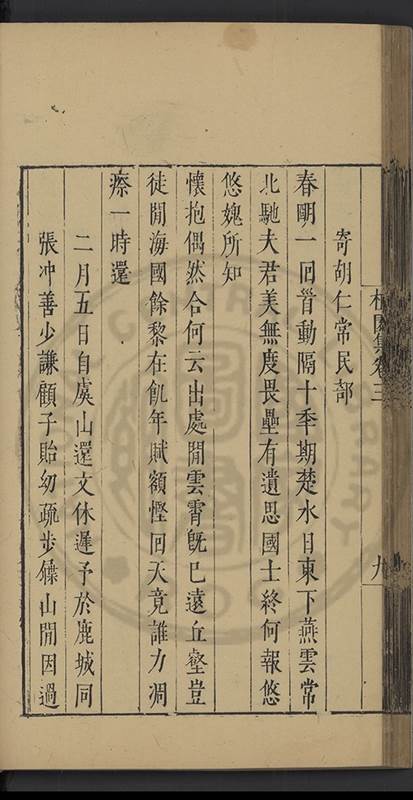 寄胡仁常民部
春明一回首動隔十年期楚水日東下燕雲常
北馳夫君美無度畏壘有遺思國士終何報悠
悠媿所知
懷抱偶然合何云出處閒雲霄旣已遠丘壑豈
徒閒海國餘黎在飢年賦額慳回天竟誰力凋
瘵一時還
二月五日自虞山還文休遲予於鹿城同
張冲善少謙顧子貽幼疏步山閒因過
集卷三
九